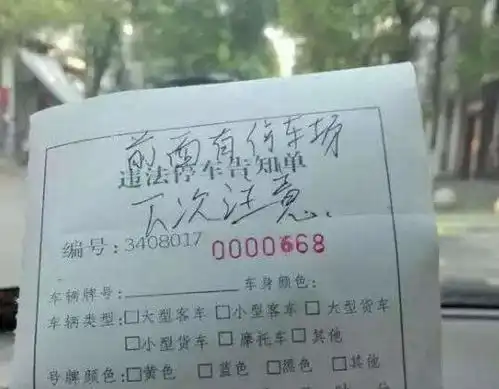 前面有停车场
违法停车告知单
下次注意.
编号:3408017 0000668
车辆牌号: 车身颜色:
车辆类型:□大型客车 □小型客车 □大型货车
□小型货车 □摩托车 □其他
号牌颜色:□黄色 □蓝色 □黑色 □其他